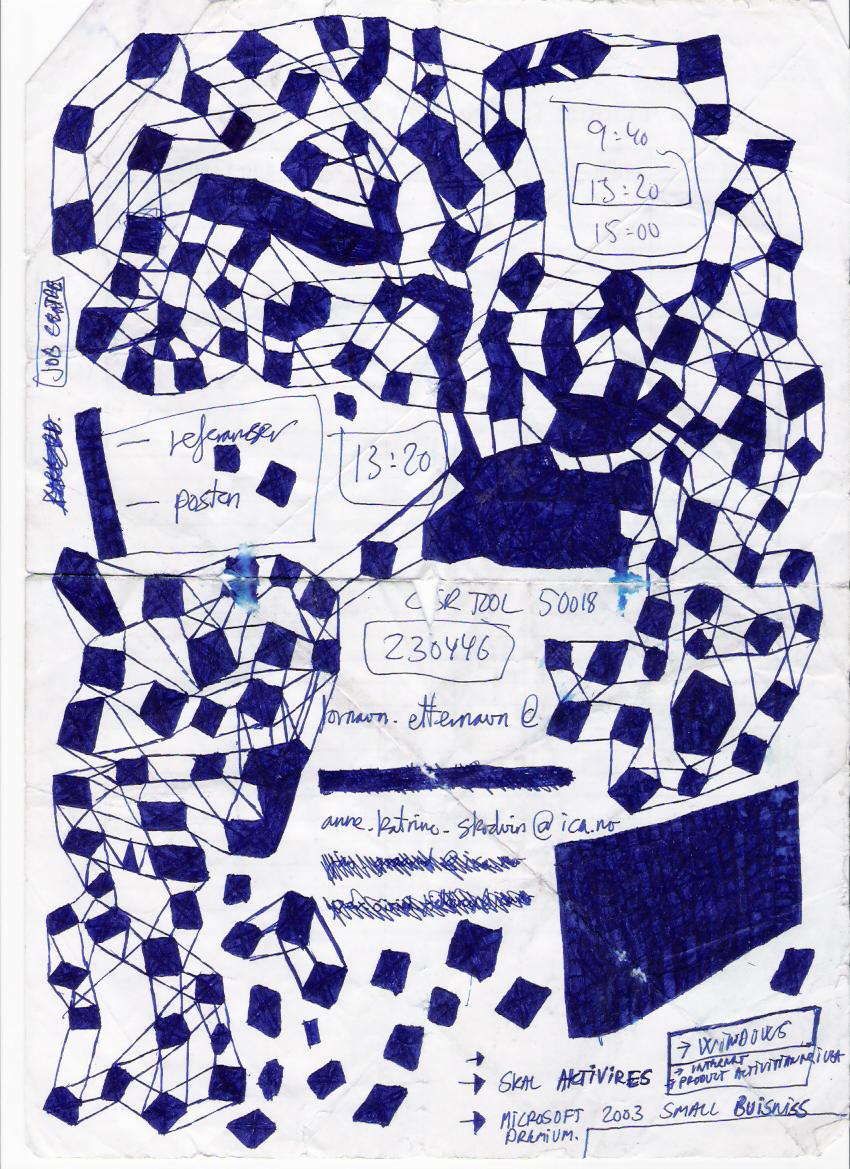 9:40
13:20
15:00
JOB CENTRE
— referanser
— posten
13:20
CSR TOOL 50018
230446
fornavn. etternavn @
anne-katrine-skodvin@ica.no
→ WINDOWS
→ INTERNET
→ PRODUCT
→ SKAL AKTIVIRES
→ MICROSOFT 2003 SMALL BUISNISS
PREMIUM.